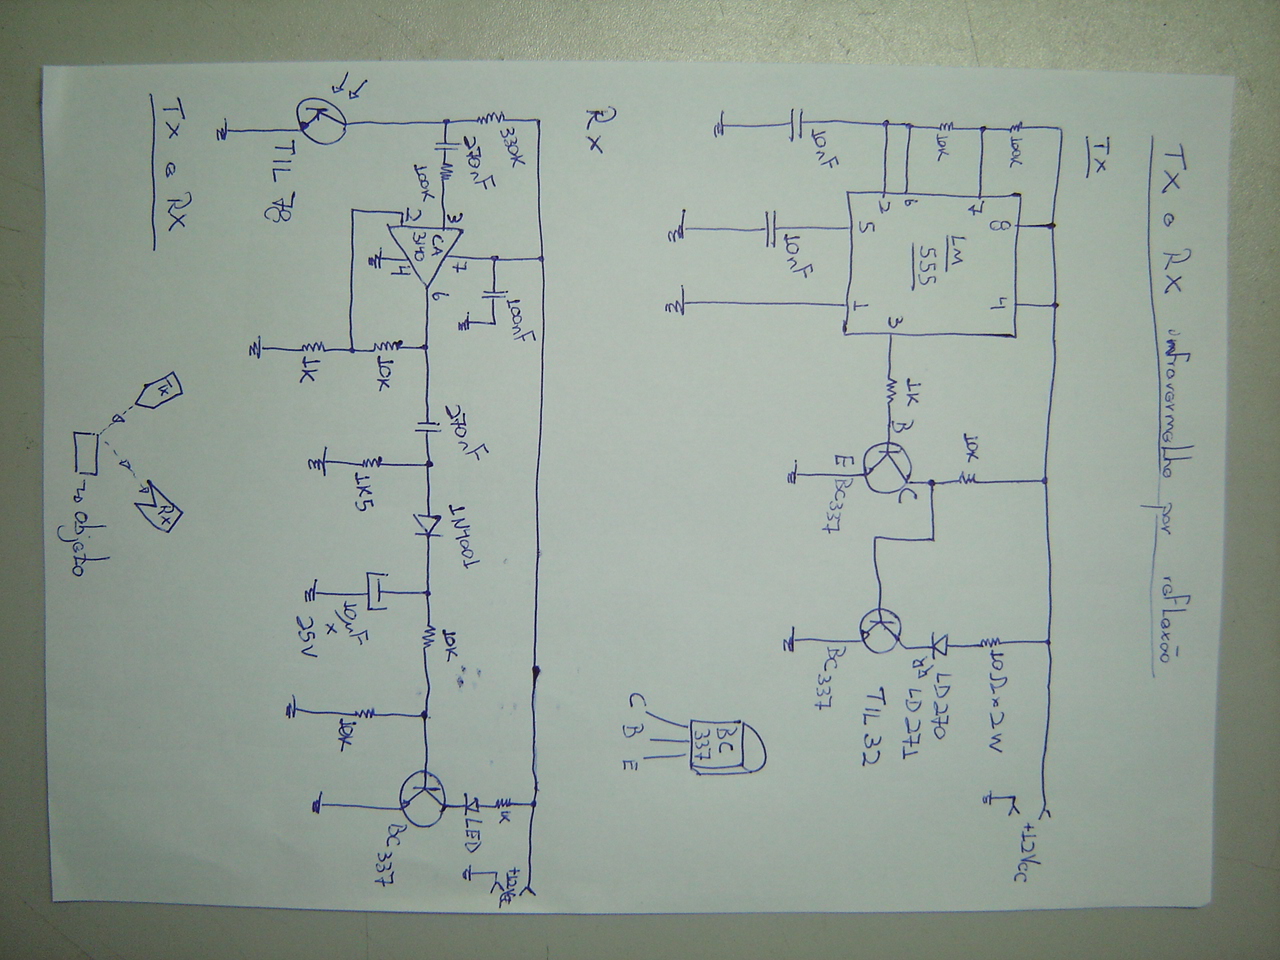 TX e RX infravermelho por reflexão
TX
100K
10K
10nF
7
6
2
8
4
LM
555
5
1
3
10nF
1K
B
C
E
BC337
10K
BC337
10Ω x 2W
LD270
LD271
TIL 32
+12Vcc
BC
337
C
B
E
RX
330K
270nF
100K
TIL 78
3
2
CA
3140
7
4
6
100nF
10K
1K
270nF
1K5
1N4001
10µF
x
25V
10K
10K
1K
LED
BC337
+12Vcc
TX e RX
TX
RX
objeto